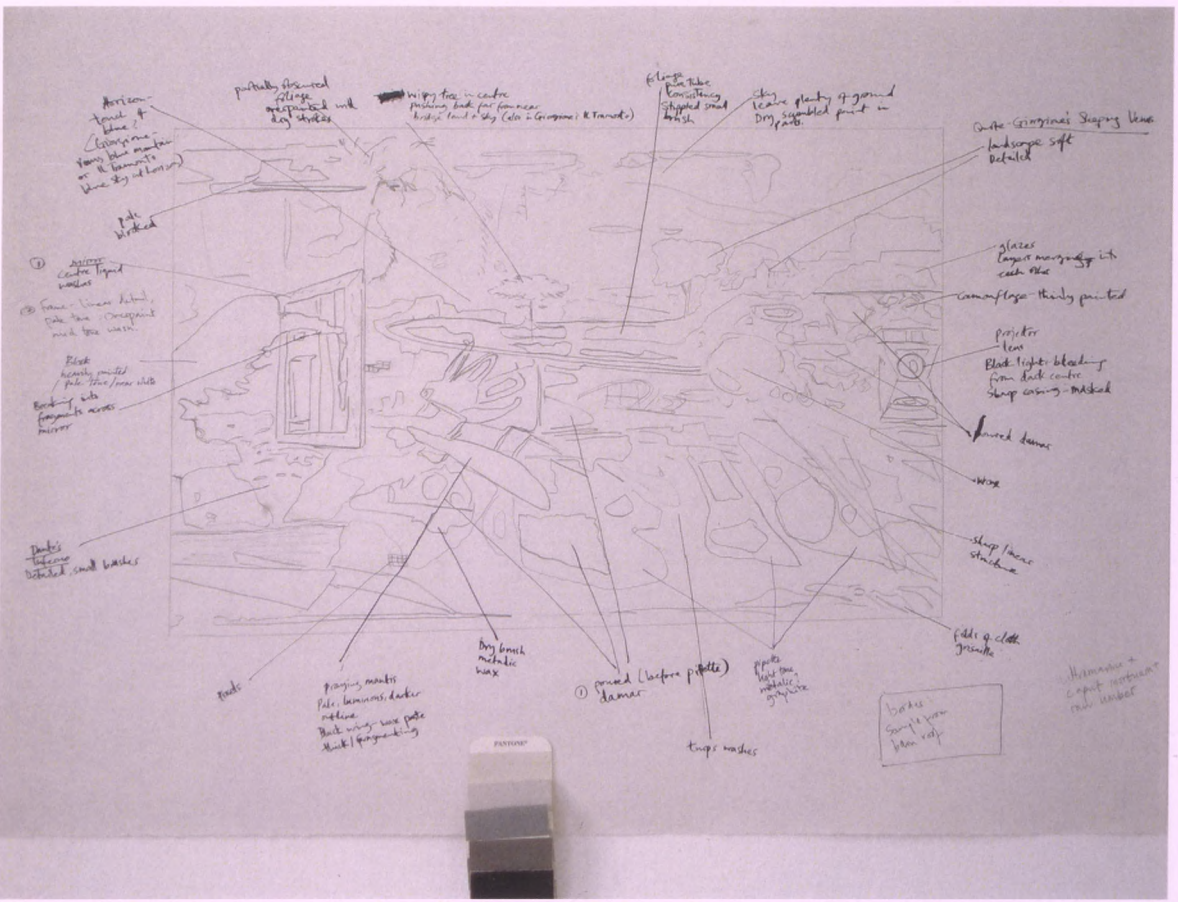 Horizon-
touch of
blue?
(Giorgione-
Venus blue mountain
or Il Tramonto
blue sky at horizon)
partially obscured
foliage
overpainted with
dry strokes
wispy tree in centre
pushing back far from near
bridge land + sky (also in Giorgione's Il Tramonto)
foliage
pure tube
consistency
stippled small
brush
sky
leave plenty of ground
Dry, scumbled paint in
parts.
Quote - Giorgione's Sleeping Venus
landscape soft
Detailed
pale
blocked
① mirror
centre liquid
washes
② Frame - linear detail,
pale tone. Overpaint
mid tone wash.
Black
heavily painted
pale tone/near white
Breaking into
fragments across
mirror
glazes
layers merging into
each other
camouflage - thinly painted
projector
lens
Black light bleeding
from dark centre
sharp casing - masked
poured damar
wing
sharp linear
structure
Dante's
Inferno
Detailed, small brushes
folds of cloth
grisaille
Roots
Praying mantis
Pale, luminous, darker
outline
Black wing - wax paste
thick/fragmenting
Dry brush
metallic
wax
① poured (before pipette)
damar
pipette
light tone
metallic?
graphite
turps washes
border
sample from
raw umber
PANTONE®